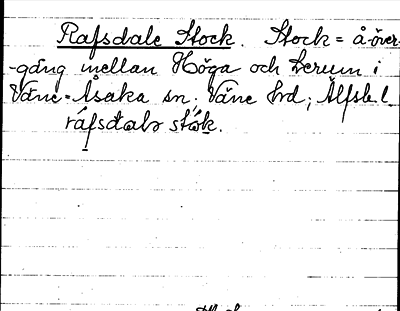 Rafsdale Stock. Stock = å-över-
-gång mellan Höga och Lerum i
Väne-Åsaka sn; Väne hrd; Älfsb. l.
ráfsdalɔ stók.